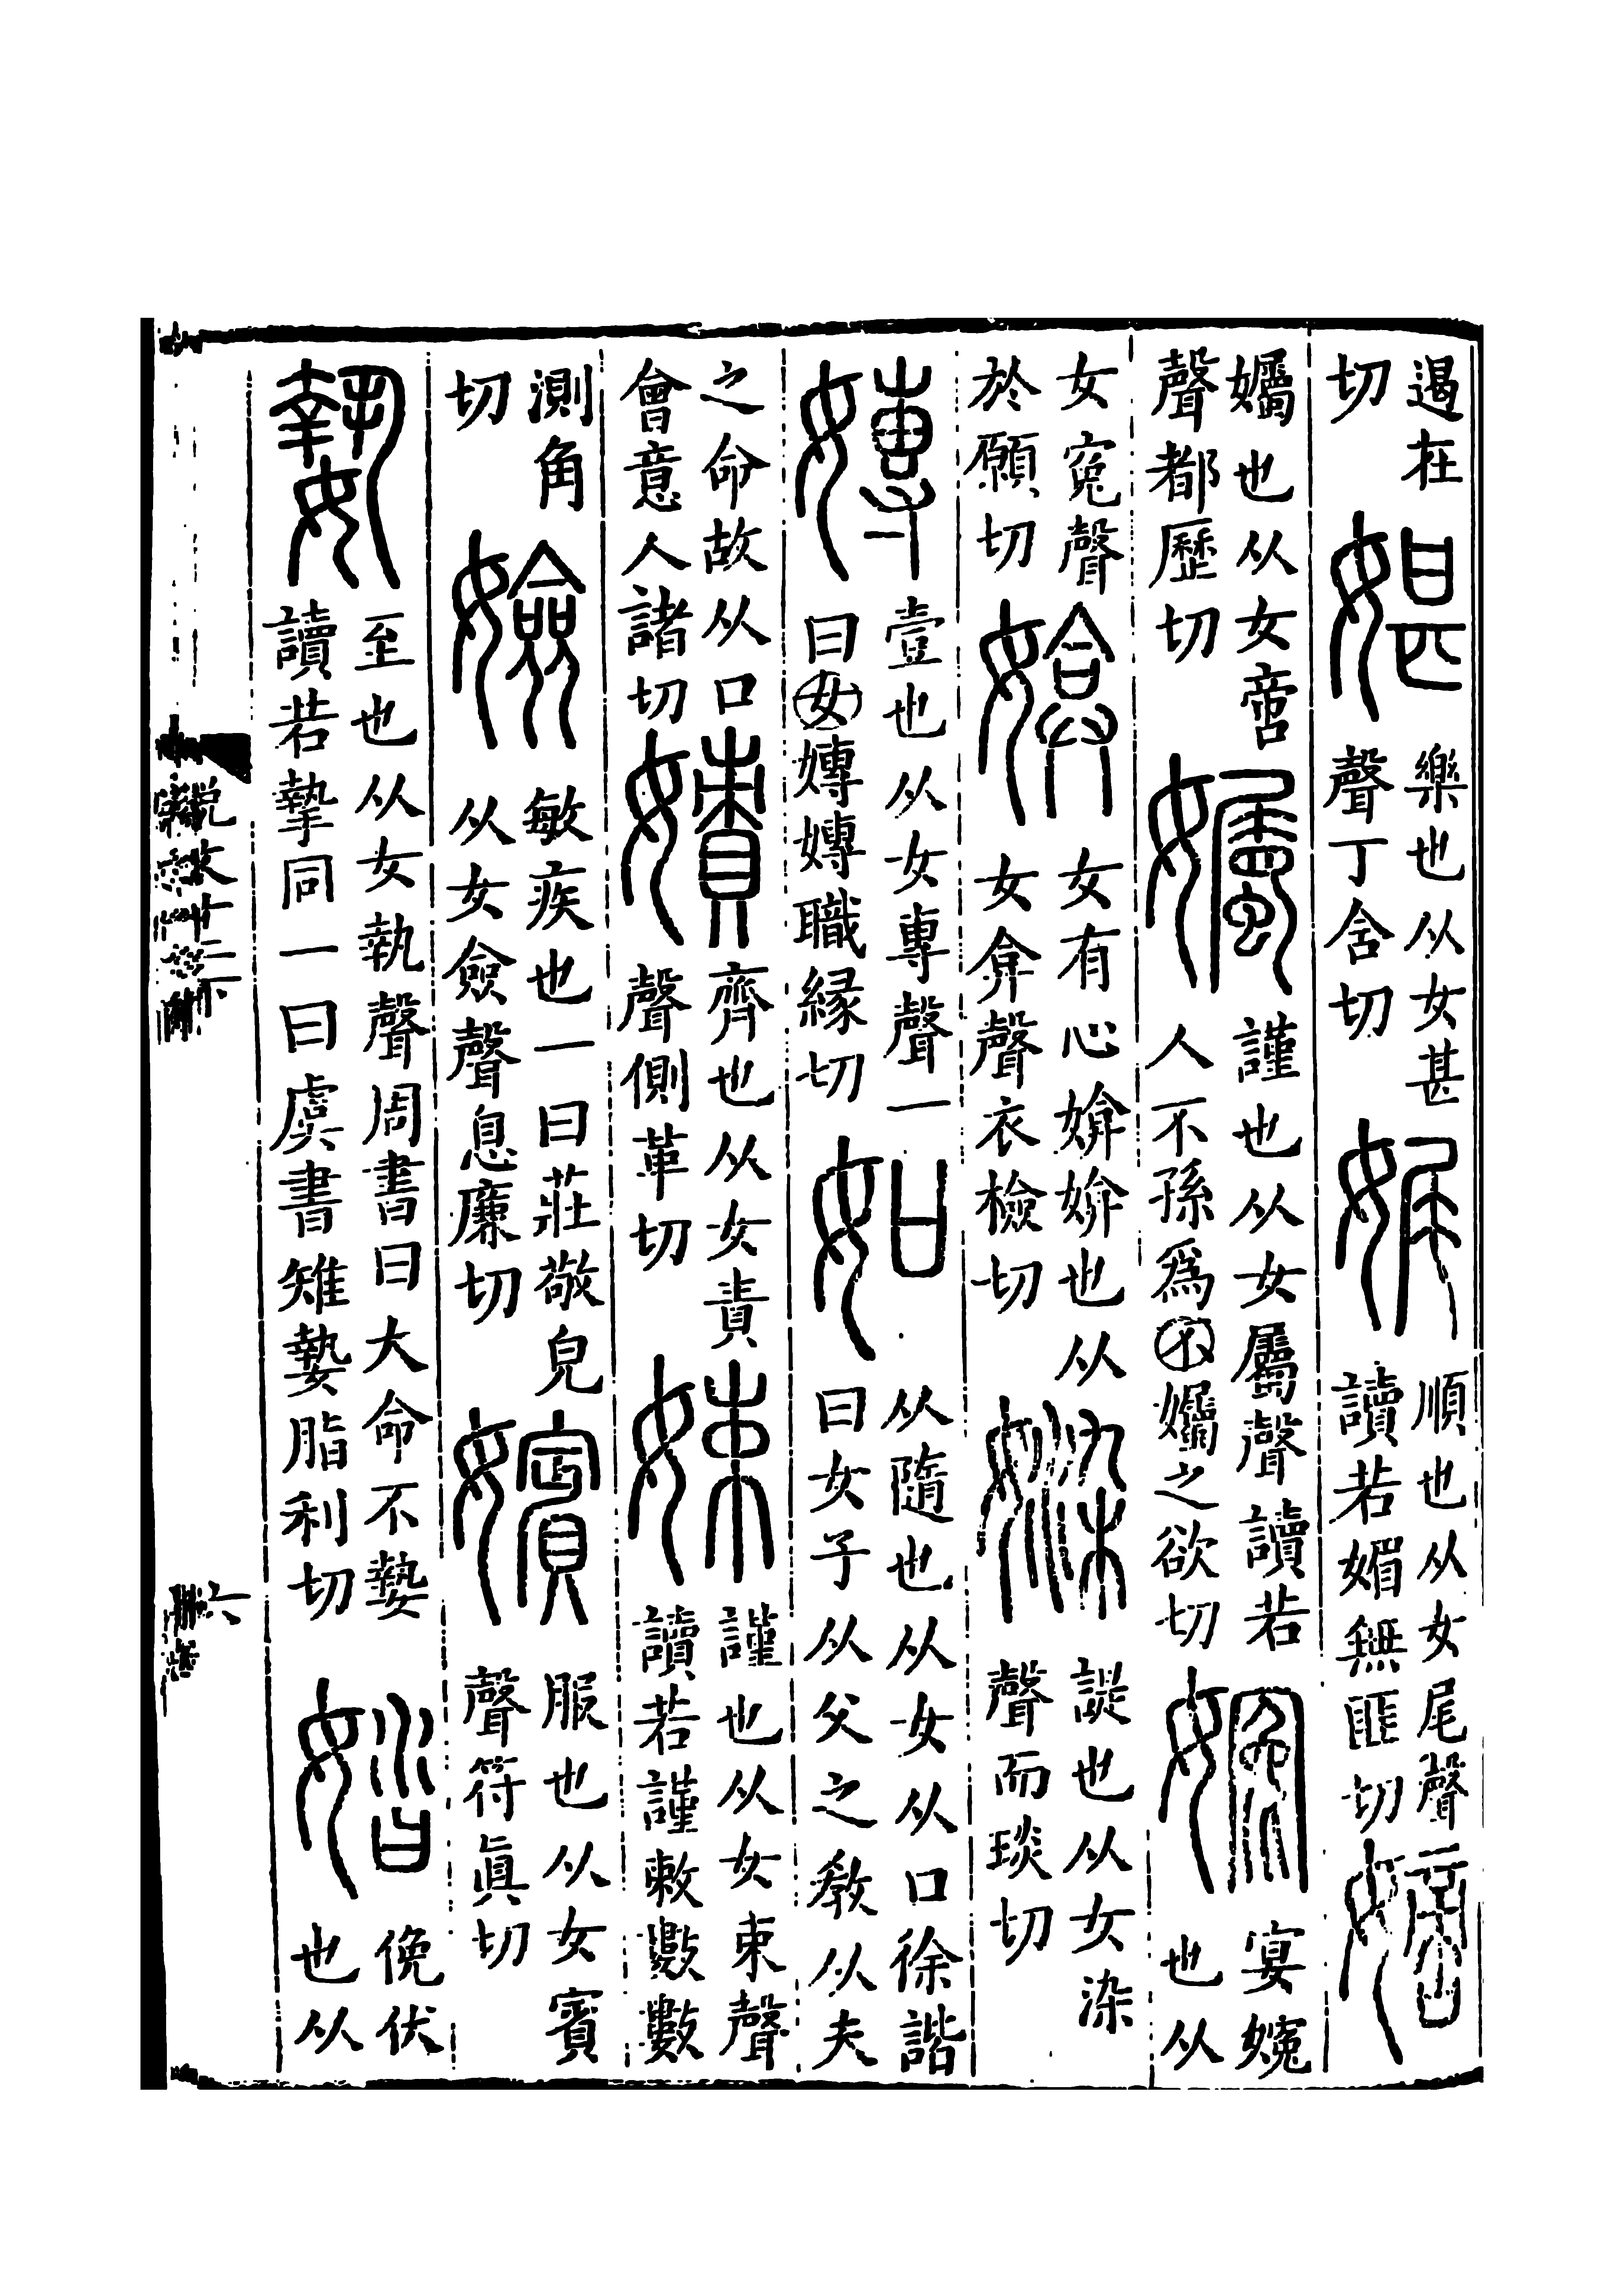 遏在切媅樂也从女甚聲丁含切娓順也从女尾聲讀若媚無匪切嫡
孎也从女啻聲都歷切孎謹也从女屬聲讀若人不孫爲不孎之欲切㜶宴㜶也从
女冤聲於願切媕女有心媕媕也从女弇聲衣檢切媣諟也从女染聲而琰切
嫥壹也从女專聲一曰女嫥嫥職緣切如从隨也从女从口徐鍇曰女子从父之教从夫
之命故从口會意人諸切嫧齊也从女責聲側革切娕謹也从女束聲讀若謹敕數數
測角切嬐敏疾也一曰莊敬皃从女僉聲息廉切嬪服也从女賓聲符眞切
𡠗至也从女執聲周書曰大命不𡠗讀若摯同一曰虞書雉𡠗脂利切㛥俛伏也从
說文十二下
六